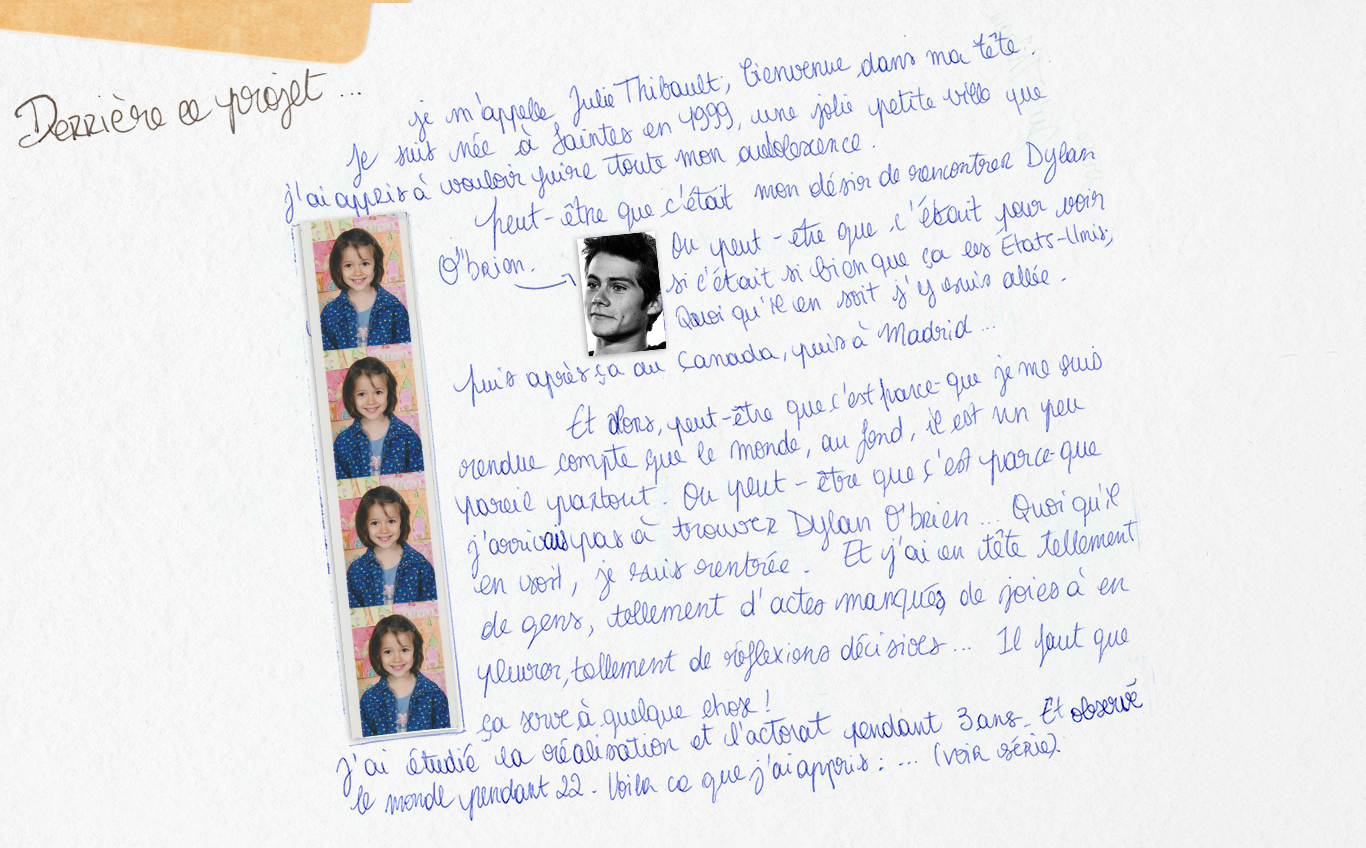 Derrière ce projet ...
je m'appelle Julie Thibault, bienvenue dans ma tête.
Je suis née à Saintes en 1999, une jolie petite ville que
j'ai appris à vouloir fuire toute mon adolescence.
Peut-être que c'était mon désir de rencontrer Dylan
O'brien.
Ou peut-être que c'était pour voir
si c'était si bien que ça les États-Unis;
Quoi qu'il en soit j'y suis allée.
puis après ça au Canada, puis à Madrid...
Et alors, peut-être que c'est parce-que je me suis
rendue compte que le monde, au fond, il est un peu
pareil partout. Ou peut-être que c'est parce-que
j'arrivais pas à trouver Dylan O'brien... Quoi qu'il
en soit, je suis rentrée. Et j'ai en tête tellement
de gens, tellement d'actes manqués, de joies à en
pleurer, tellement de réflexions décisives... Il faut que
ça serve à quelque chose!
J'ai étudié la réalisation et l'actorat pendant 3 ans. Et observé
le monde pendant 22. Voila ce que j'ai appris: ... (voir série).